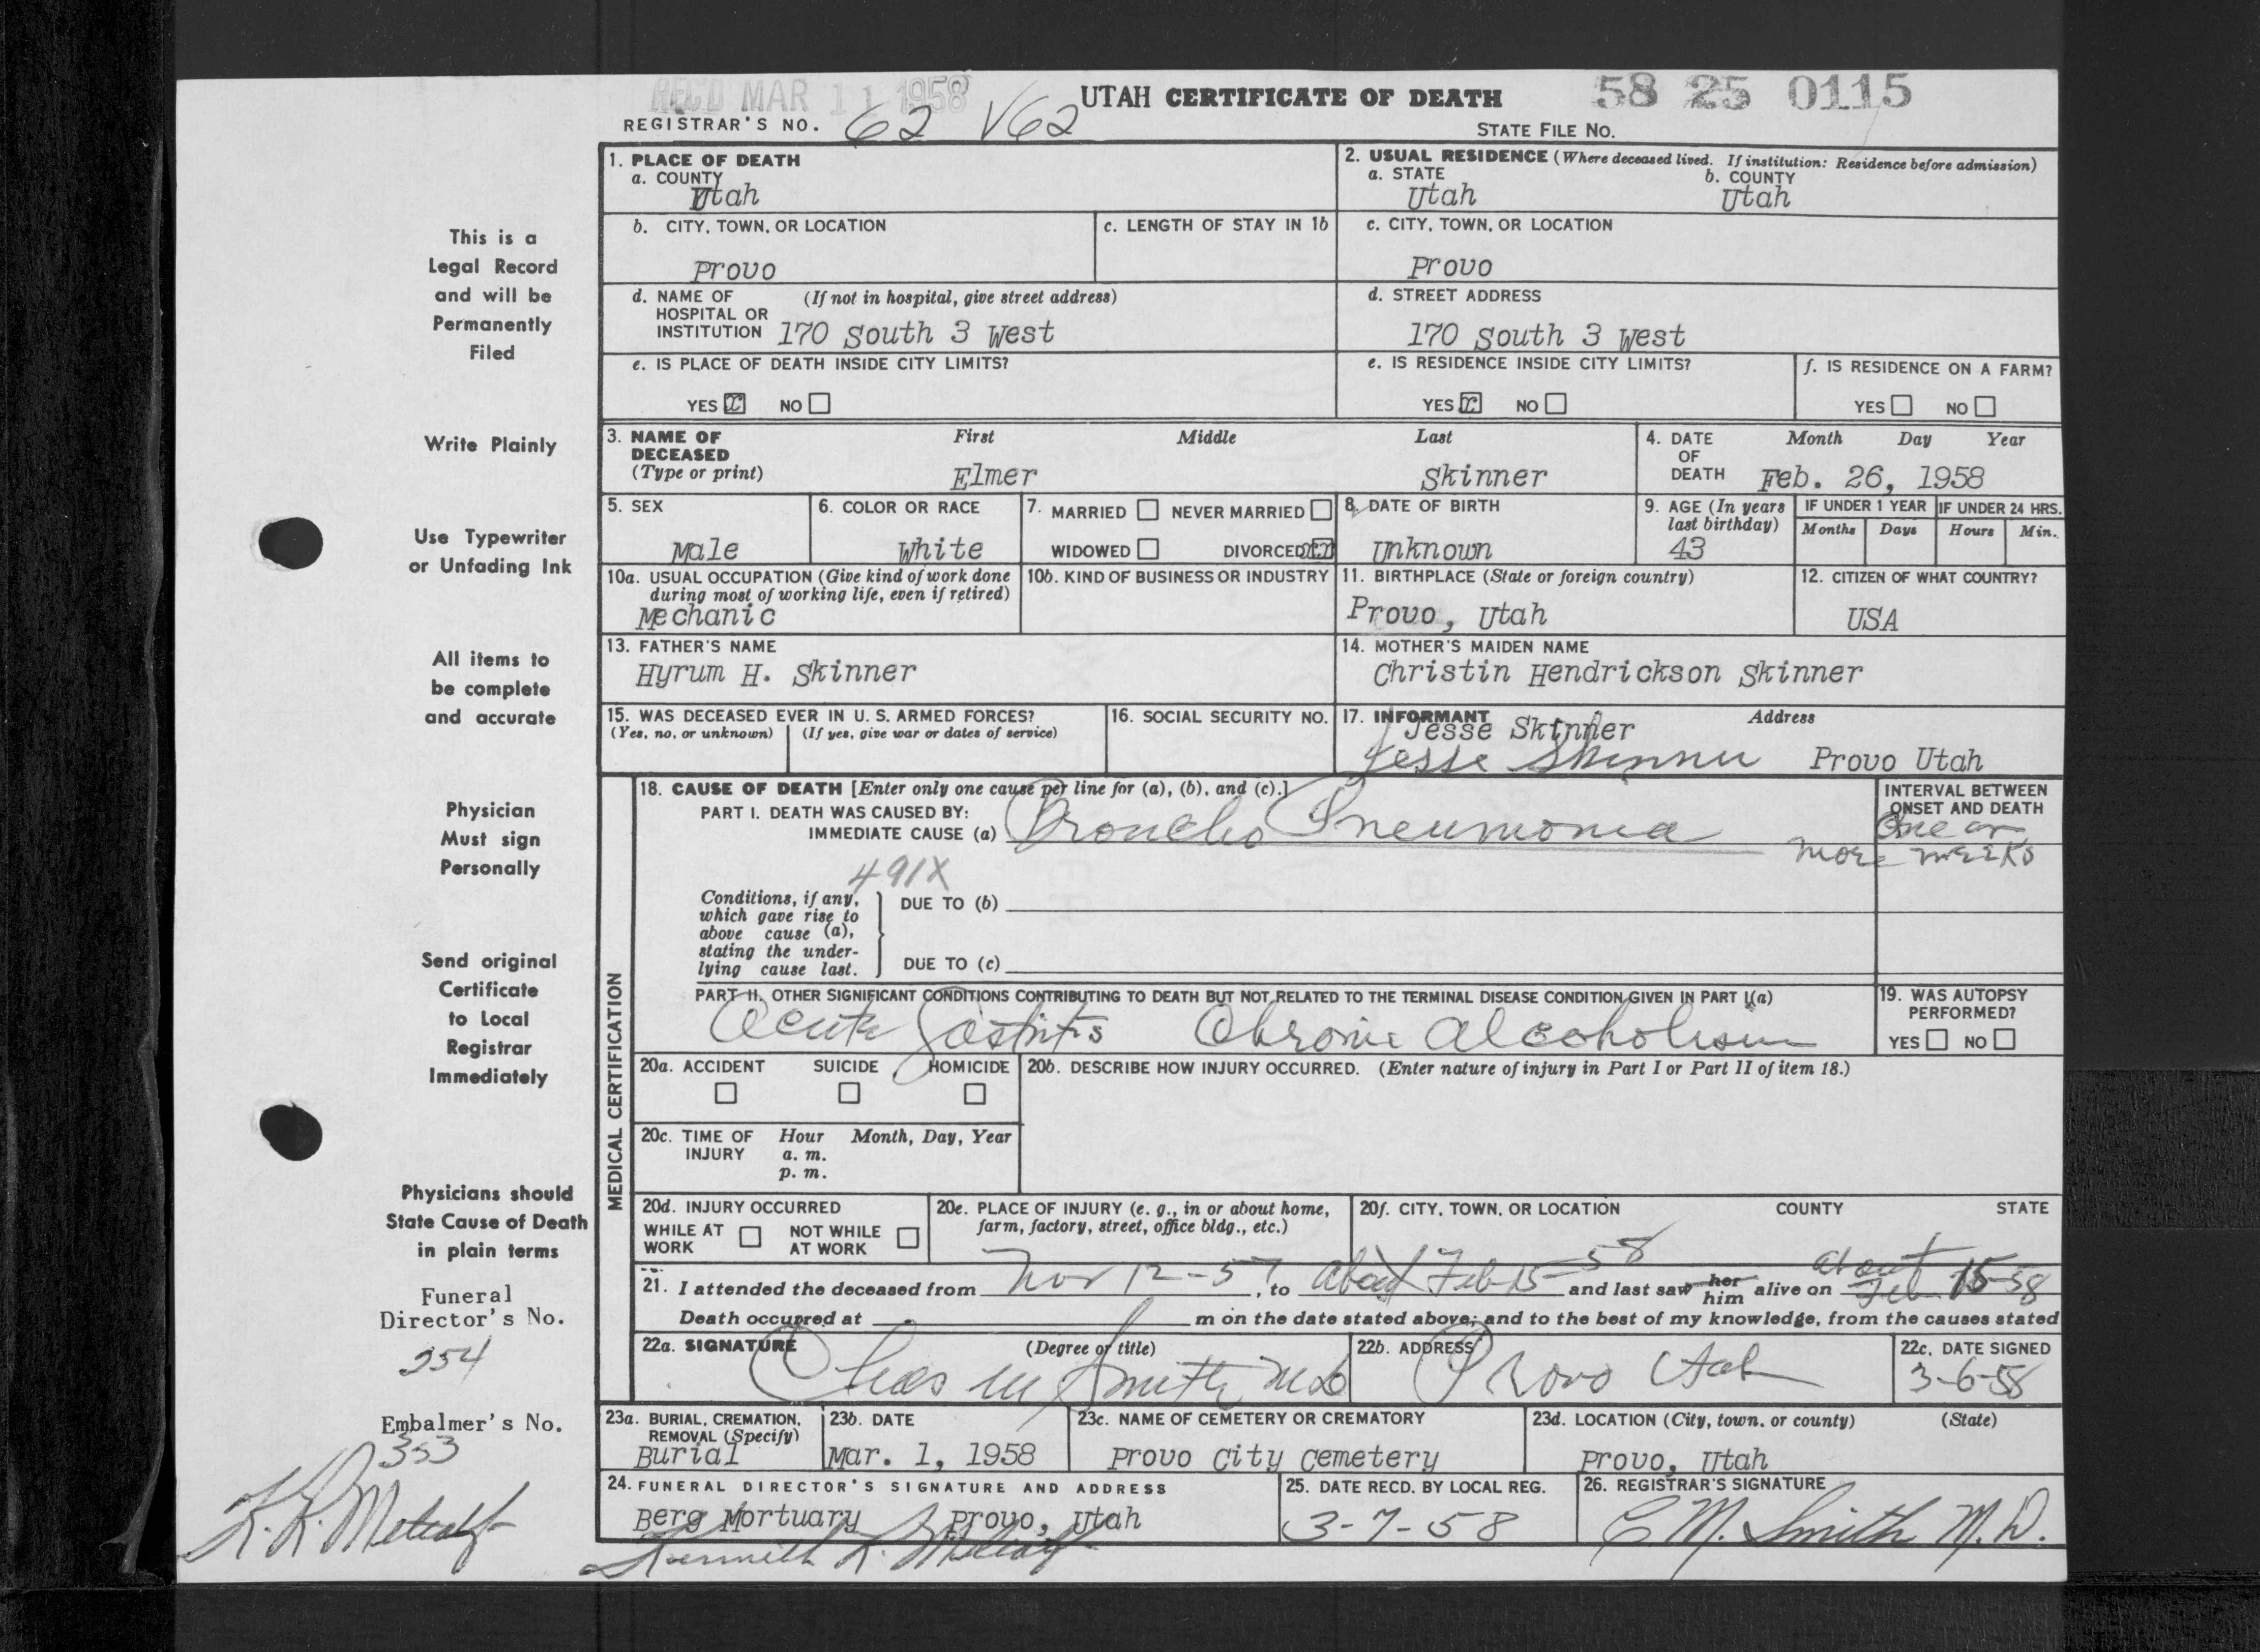 REC'D MAR 11 1958
UTAH CERTIFICATE OF DEATH
58 25 0115
REGISTRAR'S NO. 62 V62
STATE FILE NO.
1. PLACE OF DEATH
a. COUNTY
Utah
2. USUAL RESIDENCE (Where deceased lived. If institution: Residence before admission)
a. STATE b. COUNTY
Utah Utah
b. CITY, TOWN, OR LOCATION
Provo
c. LENGTH OF STAY IN 1b
c. CITY, TOWN, OR LOCATION
Provo
d. NAME OF (If not in hospital, give street address)
HOSPITAL OR
INSTITUTION 170 South 3 West
d. STREET ADDRESS
170 South 3 West
e. IS PLACE OF DEATH INSIDE CITY LIMITS?
YES x NO
e. IS RESIDENCE INSIDE CITY LIMITS?
YES x NO
f. IS RESIDENCE ON A FARM?
YES NO
3. NAME OF DECEASED (Type or print)
First Middle Last
Elmer Skinner
4. DATE OF DEATH
Month Day Year
Feb. 26, 1958
5. SEX
Male
6. COLOR OR RACE
White
7. MARRIED NEVER MARRIED
WIDOWED DIVORCED xx
8. DATE OF BIRTH
Unknown
9. AGE (In years last birthday)
43
IF UNDER 1 YEAR
Months Days
IF UNDER 24 HRS.
Hours Min.
10a. USUAL OCCUPATION (Give kind of work done
during most of working life, even if retired)
Mechanic
10b. KIND OF BUSINESS OR INDUSTRY
11. BIRTHPLACE (State or foreign country)
Provo, Utah
12. CITIZEN OF WHAT COUNTRY?
USA
13. FATHER'S NAME
Hyrum H. Skinner
14. MOTHER'S MAIDEN NAME
Christin Hendrickson Skinner
15. WAS DECEASED EVER IN U. S. ARMED FORCES?
(Yes, no, or unknown) (If yes, give war or dates of service)
16. SOCIAL SECURITY NO.
17. INFORMANT Address
Jesse Skinner
Jesse Skinner Provo Utah
MEDICAL CERTIFICATION
18. CAUSE OF DEATH [Enter only one cause per line for (a), (b), and (c).]
PART I. DEATH WAS CAUSED BY:
IMMEDIATE CAUSE (a) Broncho Pneumonia
INTERVAL BETWEEN
ONSET AND DEATH
One or
more weeks
491X
Conditions, if any,
which gave rise to
above cause (a),
stating the under-
lying cause last.
DUE TO (b)
DUE TO (c)
PART II. OTHER SIGNIFICANT CONDITIONS CONTRIBUTING TO DEATH BUT NOT RELATED TO THE TERMINAL DISEASE CONDITION GIVEN IN PART I(a)
Acute Gastritis Chronic Alcoholism
19. WAS AUTOPSY
PERFORMED?
YES NO
20a. ACCIDENT SUICIDE HOMICIDE
20b. DESCRIBE HOW INJURY OCCURRED. (Enter nature of injury in Part I or Part II of item 18.)
20c. TIME OF INJURY
Hour Month, Day, Year
a. m.
p. m.
20d. INJURY OCCURRED
WHILE AT WORK NOT WHILE AT WORK
20e. PLACE OF INJURY (e. g., in or about home,
farm, factory, street, office bldg., etc.)
20f. CITY, TOWN, OR LOCATION COUNTY STATE
21. I attended the deceased from Nov 12-57, to about Feb 15-58 and last saw her him alive on about Feb 15-58
Death occurred at m on the date stated above; and to the best of my knowledge, from the causes stated
22a. SIGNATURE (Degree or title)
Chas M Smith MD
22b. ADDRESS
Provo Utah
22c. DATE SIGNED
3-6-58
23a. BURIAL, CREMATION,
REMOVAL (Specify)
Burial
23b. DATE
Mar. 1, 1958
23c. NAME OF CEMETERY OR CREMATORY
Provo City Cemetery
23d. LOCATION (City, town, or county) (State)
Provo, Utah
24. FUNERAL DIRECTOR'S SIGNATURE AND ADDRESS
Berg Mortuary Provo, Utah
Kenneth K. Metcalf
25. DATE RECD. BY LOCAL REG.
3-7-58
26. REGISTRAR'S SIGNATURE
C M. Smith M.D.
This is a
Legal Record
and will be
Permanently
Filed
Write Plainly
Use Typewriter
or Unfading Ink
All items to
be complete
and accurate
Physician
Must sign
Personally
Send original
Certificate
to Local
Registrar
Immediately
Physicians should
State Cause of Death
in plain terms
Funeral
Director's No.
254
Embalmer's No.
353
K. K. Metcalf